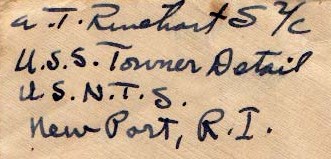 A.T. Rinehart S 2/c
U.S.S. Towner Detail
U.S.N.T.S.
New Port, R.I.